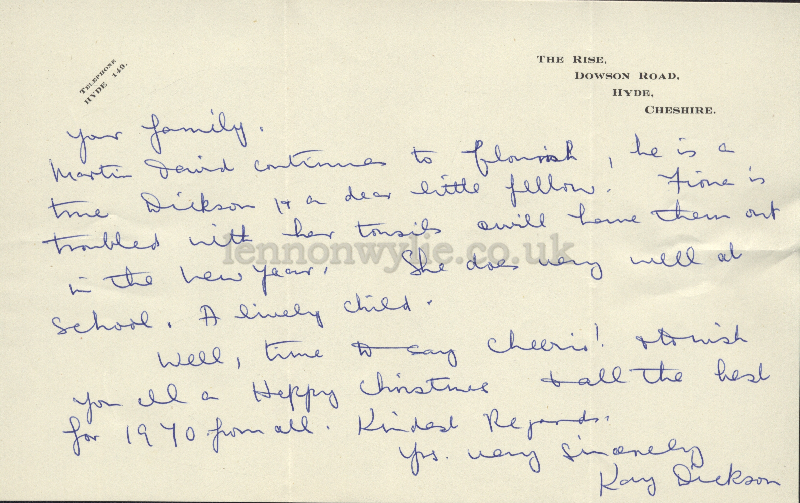 TELEPHONE
HYDE 149.
THE RISE,
DOWSON ROAD,
HYDE,
CHESHIRE.
your family.
Martin David continues to flourish, he is a
true Dickson & a dear little fellow! Fiona is
troubled with her tonsils & will have them out
in the New Year. She does very well at
School. A lively child.
Well, time to say cheerio! & to wish
you all a Happy Christmas & all the best
for 1970 from all. Kindest Regards.
Yrs. very sincerely
Kay Dickson
lennonwylie.co.uk